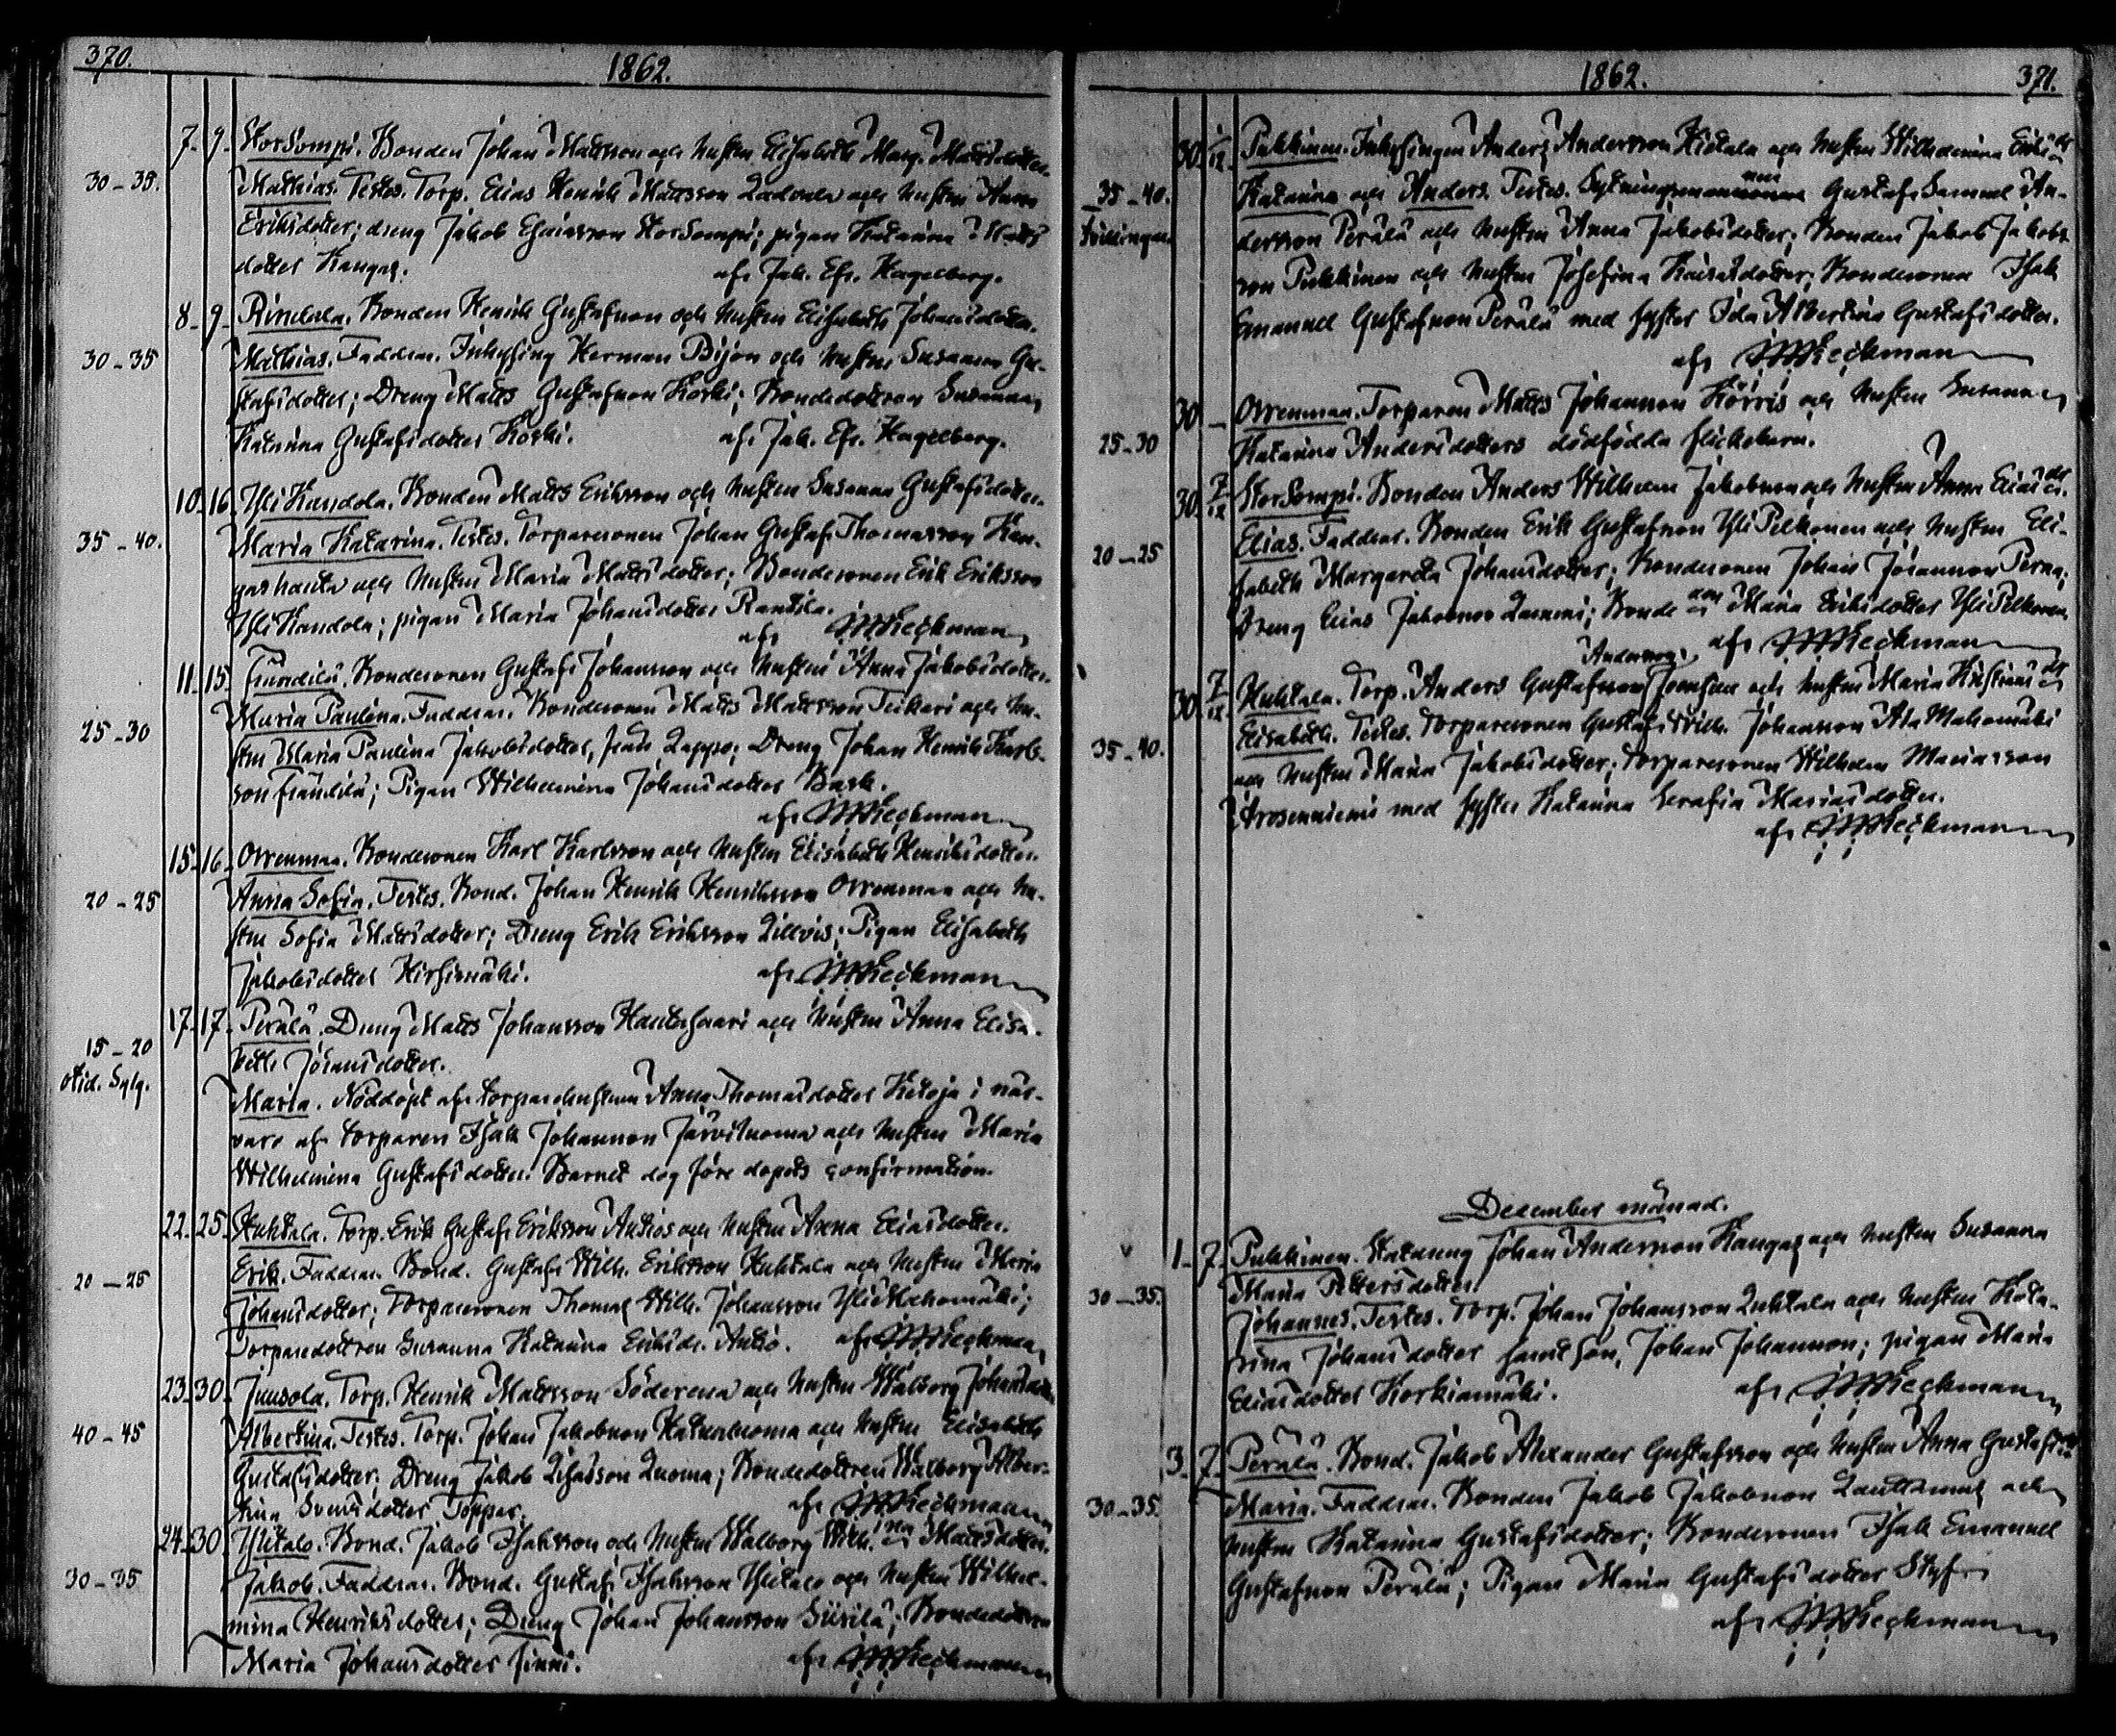 370.
1862.
7. 9. StorSompi. Bonden Johan Mattsson och hustru Elisabeth Marg. Mattsdotter.
30-35. Mathias. Testes. Torp. Elias Henrik Mattsson och hustru Anna
Eriksdotter; dreng Jakob StorSompi; pigan Katarina Matts
dotter Kangas. af Jak. Efr. Hagelberg.
8. 9. Rindala. Bonden Henrik Gustafsson och hustru Elisabeth Johansdotter.
30-35 Mathias. Faddrar. Inhysing Herman Bijon och hustru Susanna Gu-
stafsdotter; Dreng Matts Gustafsson Koski; Bondedottren Susanna
Katarina Gustafsdotter Koski. af Jak. Efr. Hagelberg.
10. 16. Yli Kandola. Bonden Matts Eriksson och hustru Susanna Gustafsdotter.
35-40. Maria Katarina. Testes. Torparesonen Johan Gustaf Thomasson Kan-
gashauta och hustru Maria Mattsdotter; Bondesonen Erik Eriksson
Yli Kandola; pigan Maria Johansdotter Rantila.
af Keckman
11. 15. Fränttilä. Bondesonen Gustaf Johansson och hustru Anna Jakobsdotter.
25-30 Maria Paulina. Faddrar. Bondesonen Matts Mattsson Teikari och hu-
stru Maria Paulina Jakobsdotter, från Lappo; Dreng Johan Henrik Karls-
son Fränttilä; Pigan Wilhelmina Johansdotter Bask.
af Keckman
15. 16. Orrenmaa. Bondesonen Karl Karlsson och hustru Elisabeth Henriksdotter.
20-25 Anna Sofia. Testes. Bond. Johan Henrik Henriksson Orrenmaa och hu-
stru Sofia Mattsdotter; Dreng Erik Eriksson Lillvis; Pigan Elisabeth
Jakobsdotter Hirsimäki. af Keckman
17. 17. Perälä. Dreng Matts Johansson Hautasaari och hustru Anna Elisa-
15-20 beth Johansdotter.
otid. Sylg.
Maria. Nöddöpt af torparehustrun Anna Thomasdotter Ketoja i när-
varo af torparen Isak Johansson Järviluoma och hustru Maria
Wilhelmina Gustafsdotter. Barnet dog före dopets confirmation.
22. 25. Huhtala. Torp. Erik Gustaf Eriksson Antios och hustru Anna Eliasdotter.
20-25 Erik. Faddrar. Bond. Gustaf Wilh. Eriksson Huhtala och hustru Maria
Johansdotter; Torparesonen Thomas Wilh. Johansson Yli Mahomäki;
Torparedottren Susanna Katarina Eriksdr. Antio. af Keckman
23. 30. Juusola. Torp. Henrik Mattsson Söderena och hustru Walborg Johansdotter
40-45 Albertina. Testes. Torp. Johan Jakobsson Katusluoma och hustru Elisabeth
Gustafsdotter; Dreng Jakob Luoma; Bondedottren Walborg Alber-
tina Svensdotter Toppar. af Keckman
24. 30. Ylitalo. Bond. Jakob Isaksson och hustru Walborg Wilh:ina Mattsdotter.
30-35 Jakob. Faddrar. Bond. Gustaf Isaksson Ylitalo och hustru Wilhel-
mina Henriksdotter; Dreng Johan Johansson Siirilä; Bondedottren
Maria Johansdotter Sinni. af Keckman
1862.
371.
30. 1/12 Pukkinen. Inhysingen Anders Andersson Hietala och hustru Wilhelmina Eriksdr
35-40. Katarina och Anders. Testes. Sytningsmannen Gustaf Samuel An-
Tvillingar. dersson Perälä och hustru Anna Jakobsdotter; Bonden Jakob Jakobs
son Pukkinen och hustru Josefina Kaisasdotter; Bondesonen Isak
Emanuel Gustafsson Perälä med syster Ida Albertina Gustafsdotter.
af Keckman
30. – Orrenmaa. Torparen Matts Johansson Körris och hustru Susanna
25-30 Katarina Andersdotters dödfödda flickebarn.
30. 7/12 StorSompi. Bonden Anders Wilhelm Jakobsson och hustru Anna Eliasdr.
20-25 Elias. Faddrar. Bonden Erik Gustafsson Yli Pelkonen och hustru Eli-
sabeth Margareta Johansdotter; Bondesonen Johan Johansson Perna;
Dreng Elias Jakobsson Lammi; Bondedon Maria Eriksdotter Yli Pelkonen
af Keckman
30. 7/12 Huhtala. Torp. Anders Gustafsson Anderssons och hustru Maria Kristinasdr
35-40. Elisabeth. Testes. Torparesonen Gustaf Wilh. Johansson Ala Mahomäki
och hustru Maria Jakobsdotter; Torparesonen Wilhelm Mariasson
Arosenniemi med syster Katarina Serafia Mariasdotter.
af Keckman
December månad.
1. 7. Pukkinen. Statdreng Johan Andersson Kangas och hustru Susanna
30-35. Maria Pettersdotter.
Johannes. Testes. Torp. Johan Johansson Luhtala och hustru Kata-
rina Johansdotter samt son, Johan Johansson; pigan Maria
Eliasdotter Korkiamäki. af Keckman
3. 7. Perälä. Bond. Jakob Alexander Gustafsson och hustru Anna Gustafsdr
30-35. Maria. Faddrar. Bonden Jakob Jakobsson Lauttamus och
hustru Katarina Gustafsdotter; Bondesonen Isak Emanuel
Gustafsson Perälä; Pigan Maria Gustafsdotter Styf
af Keckman